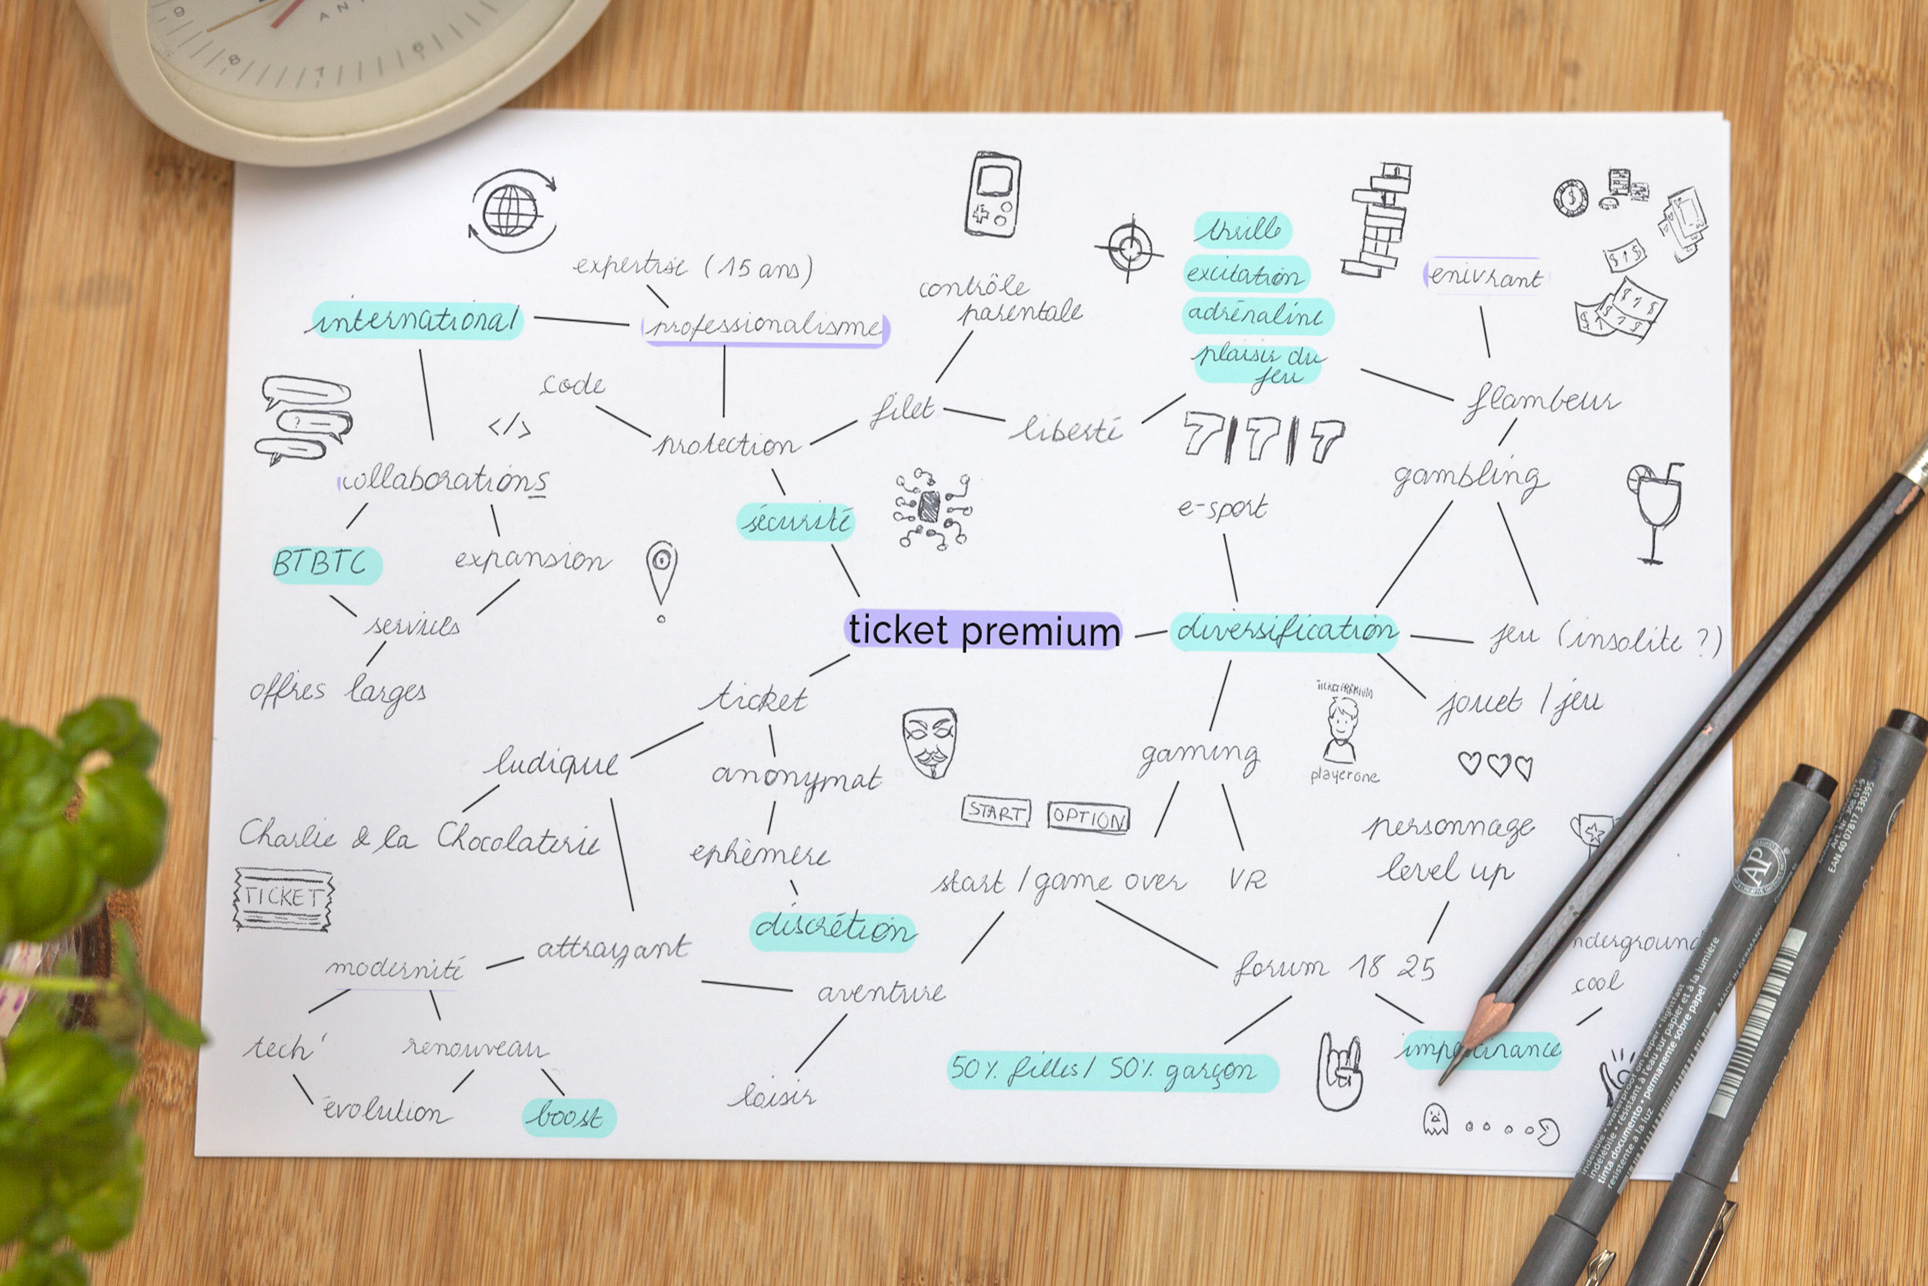 expertise (15 ans)
international
professionalisme
contrôle
parentale
thrille
excitation
adrénaline
plaisir du
jeu
enivrant
code
</>
protection
filet
liberté
flambeur
7|7|7
collaborations
sécurité
e-sport
gambling
BTBTC
expansion
services
offres larges
ticket premium
diversification
jeu (insolite ?)
jouet / jeu
ticket
TICKET PREMIUM
playerone
ludique
anonymat
gaming
START
OPTION
Charlie & la Chocolaterie
TICKET
éphémère
start / game over
VR
personnage
level up
discrétion
modernité
attrayant
aventure
forum 18 25
cool
tech'
renouveau
évolution
boost
loisir
50% filles / 50% garçon
AP
EAN 40 07817 330395
MADE IN GERMANY